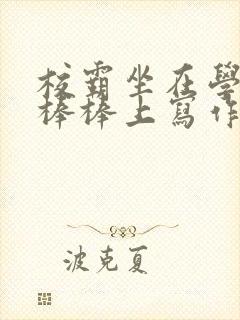 校霸坐在學
棒棒上寫作
波克夏